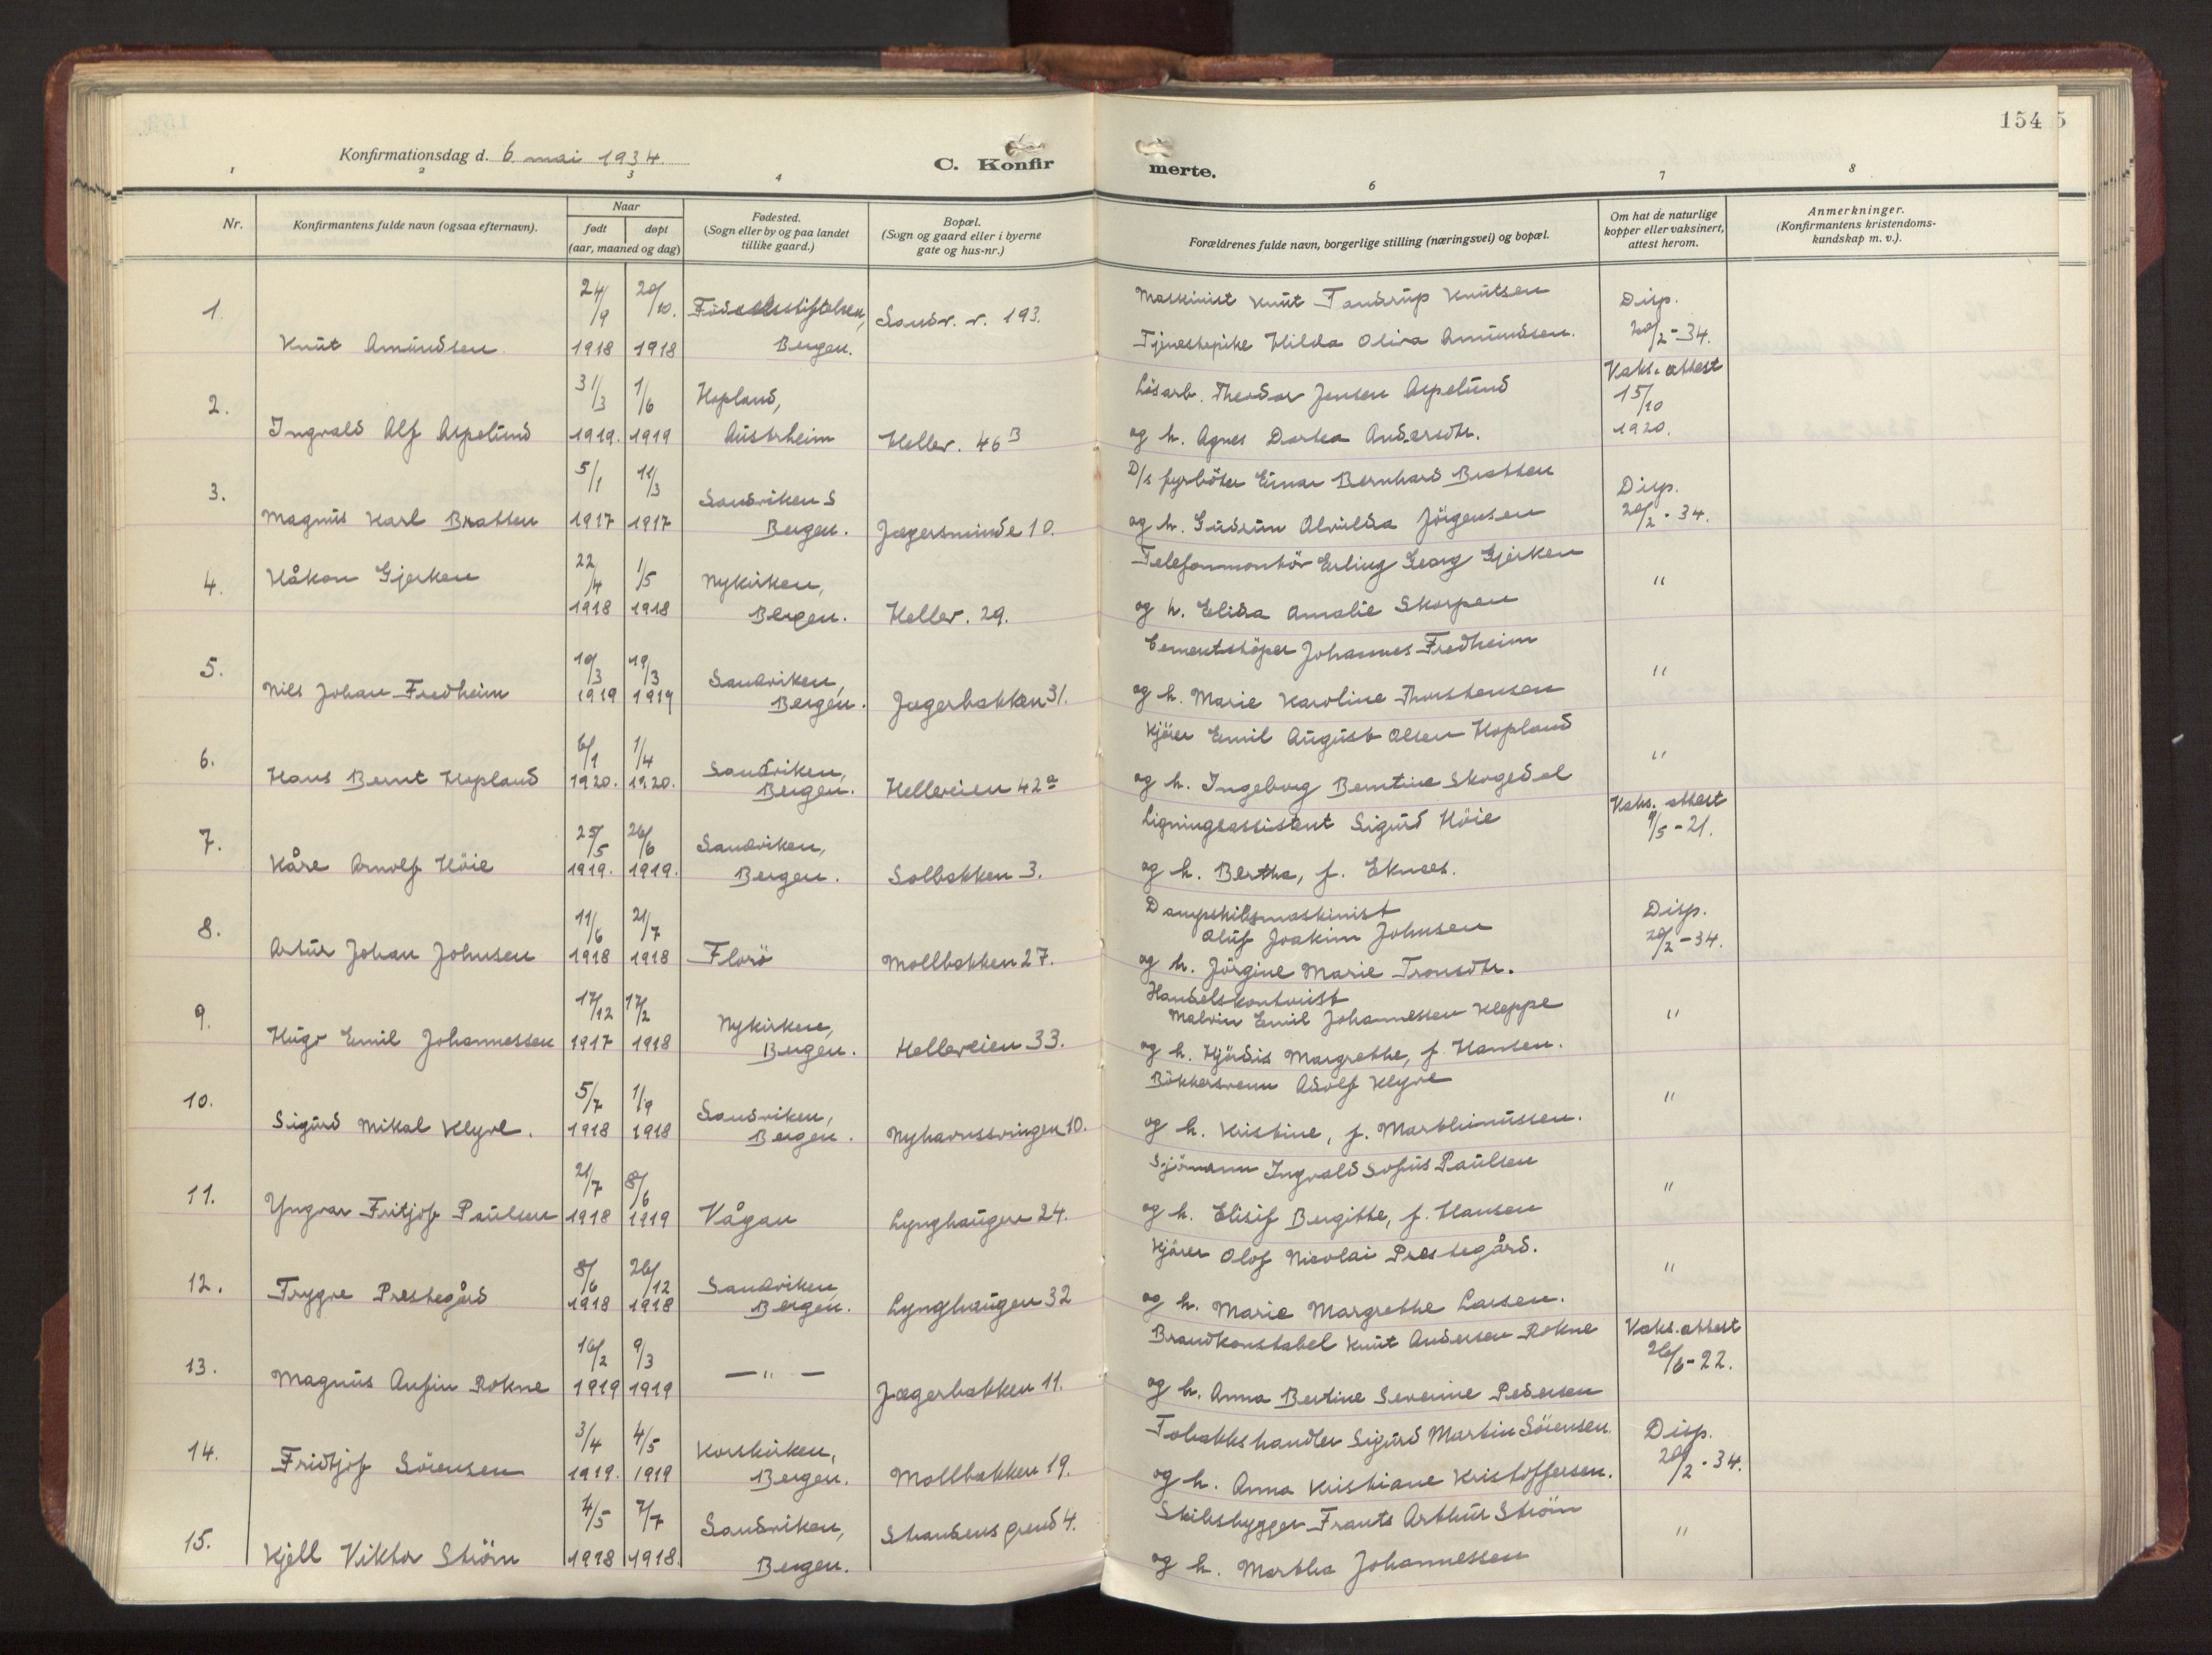 154 5
Konfirmationsdag d. 6 mai 1934.
C. Konfirmerte.
1 2 3 4 6 7 8
Nr.
Konfirmantens fulde navn (ogsaa efternavn).
Naar
født døpt
(aar, maaned og dag)
Fødested.
(Sogn eller by og paa landet
tillike gaard.)
Bopæl.
(Sogn og gaard eller i byerne
gate og hus-nr.)
Forældrenes fulde navn, borgerlige stilling (næringsvei) og bopæl.
Om hat de naturlige
kopper eller vaksinert,
attest herom.
Anmerkninger.
(Konfirmantens kristendoms-
kundskap m. v.).
1. 24/9 20/10. Födselsstiftelsen, Sandv. v. 193. Maskinist Knut Tandrup Knutsen Disp.
Knut Amundsen 1918 1918 Bergen. Tjenestepike Hilda Oliva Amundsen. 20/2-34.
2. 31/3 1/6 Hopland, Lösarb. Theodor Jensen Aspelund Vaks. attest 15/10
Ingvald Alf Aspelund 1919. 1919 Austrheim Heller. 46 B og h. Agnes Dortea Andersdtr. 1920.
3. 5/1 11/3 Sandviken S D/s fyrböter Einar Bernhard Bratten Disp.
Magnus Karl Bratten 1917 1917 Bergen. Jægersminde 10. og h. Gudrun Alvilda Jörgensen 20/2-34.
4. Håkon Gjerken 22/4 1/5 Nykirken, Telefonmontör Erling Georg Gjerken "
1918 1918 Bergen. Heller. 29. og h. Elida Amalie Skorpen
5. 10/3 19/3 Sandviken, Cementstöper Johannes Fredheim "
Nils Johan Fredheim 1919 1919 Bergen. Jægerbakken 31. og h. Marie Karoline Thorstensen
6. 6/1 1/4 Sandviken, Kjörer Emil August Olsen Hopland "
Hans Bernt Hopland 1920. 1920. Bergen. Helleveien 42 a og h. Ingeborg Berntine Skogedal
7. 25/5 26/6 Sandviken, Ligningsassistent Sigurd Höie Vaks. attest
Kåre Arnolf Höie 1919. 1919. Bergen. Solbakken 3. og h. Bertha, f. Eknes. 9/5-21.
8. 11/6 21/7 Dampskibsmaskinist Disp.
Oluf Joakim Johnsen 20/2-34.
Artur Johan Johnsen 1918 1918 Florö Mollbakken 27. og h. Jörgine Marie Tronsdtr.
9. 17/12 17/2 Nykirken, Handelskontorist
Malvin Emil Johannessen Kleppe "
Hugo Emil Johannessen 1917 1918 Bergen. Helleveien 33. og h. Hjördis Margrethe, f. Hansen.
10. 5/7 1/9 Sandviken, Bökkersvenn Adolf Klyve "
Sigurd Mikal Klyve. 1918 1918 Bergen. Nyhavnssvingen 10. og h. Kristine, f. Marthinussen.
11. 21/7 8/6 Sjömann Ingvald Sofus Paulsen "
Yngvar Fritjof Paulsen 1918 1919 Vågan Lynghaugen 24. og h. Elisif Bergitte, f. Hansen
12. 8/6 26/12 Sandviken, Kjörer Olof Nicolai Prestegård. "
Trygve Prestegård 1918 1918 Bergen. Lynghaugen 32 og h. Marie Margrethe Larsen.
13. 16/2 9/3 — " — Brandkonstabel Knut Andersen Rokne Vaks. attest
Magnus Anfin Rokne 1919 1919 Jægerbakken 11. og h. Anna Bertine Severine Pedersen 26/6-22.
14. 3/4 4/5 Korskirken, Tobakkshandler Sigurd Martin Sörensen. Disp.
Fridtjof Sörensen 1919. 1919 Bergen. Mollbakken 19. og h. Anna Kristiane Kristoffersen. 20/2-34.
15. 4/5 7/7 Sandviken, Strandens grend 4. Skibsbygger Frants Arthur Ström "
Kjell Viktor Ström 1918 1918. Bergen. og h. Martha Johannessen